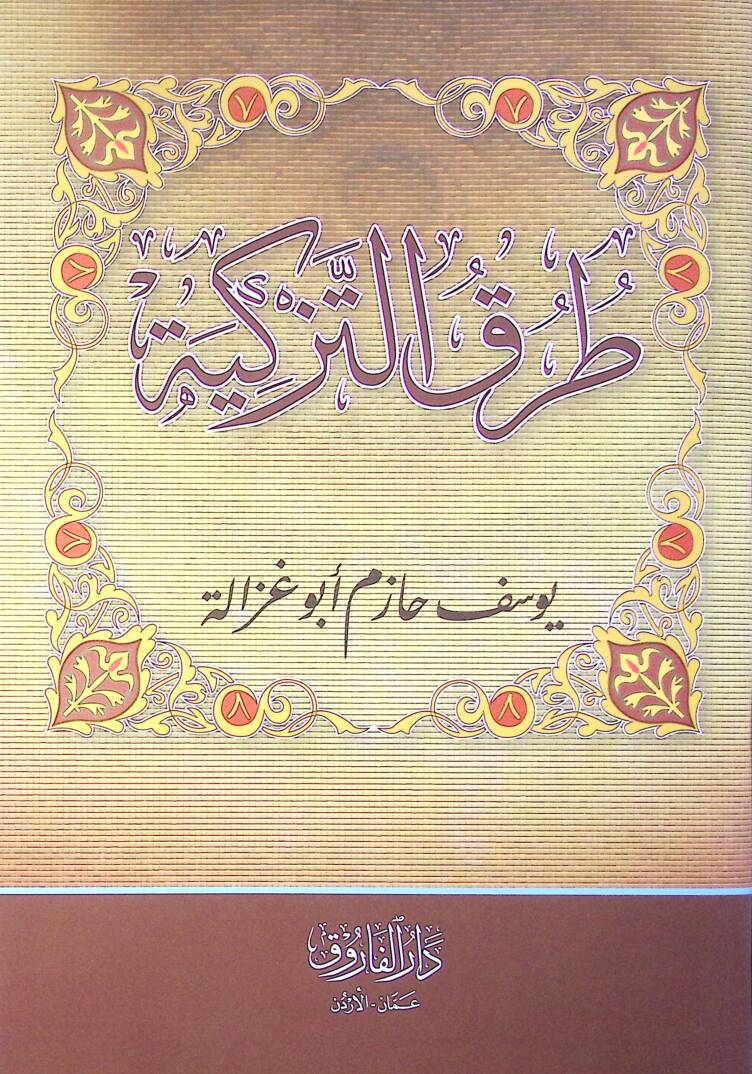 طُرُقُ التَّزْكِيَةِ
يوسف حازم أبو غزالة
دَارُ الفَارُوق
عَمَّان - الأُرْدُن